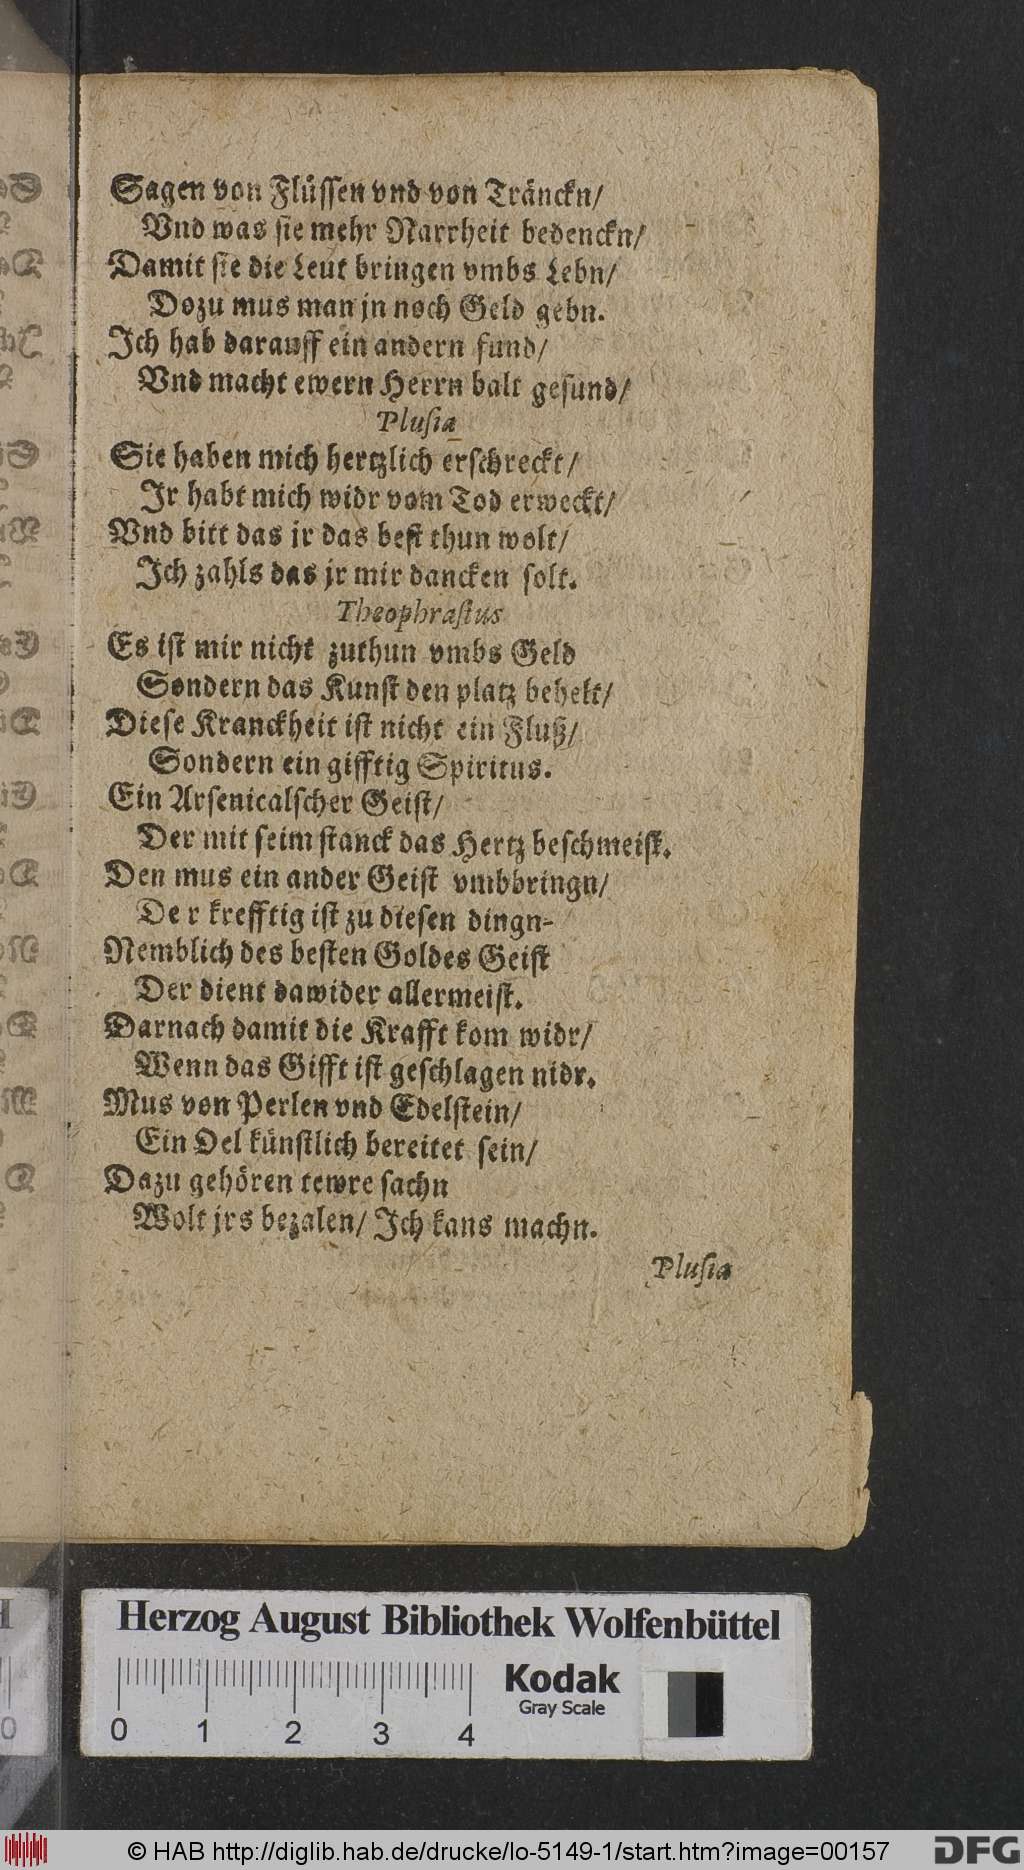 Sagen von Flüssen vnd von Tränckn/
Vnd was sie mehr Narrheit bedenckn/
Damit sie die Leut bringen vmbs Lebn/
Dozu mus man jn noch Geld gebn.
Ich hab darauff ein andern fund/
Vnd macht ewern Herrn balt gesund/
Plusia
Sie haben mich hertzlich erschreckt/
Ir habt mich widr vom Tod erweckt/
Vnd bitt das ir das best thun wolt/
Ich zahls das jr mir dancken solt.
Theophrastus
Es ist mir nicht zuthun vmbs Geld
Sondern das Kunst den platz behelt/
Diese Kranckheit ist nicht ein Fluß/
Sondern ein gifftig Spiritus.
Ein Arsenicalscher Geist/
Der mit seim stanck das Hertz beschmeist.
Den mus ein ander Geist vmbbringn/
De r krefftig ist zu diesen dingn-
Nemblich des besten Goldes Geist
Der dient dawider allermeist.
Darnach damit die Krafft kom widr/
Wenn das Gifft ist geschlagen nidr.
Mus von Perlen vnd Edelstein/
Ein Oel künstlich bereitet sein/
Dazu gehören tewre sachn
Wolt jrs bezalen/ Ich kans machn.
Plusia
Herzog August Bibliothek Wolfenbüttel
Kodak
Gray Scale
0 1 2 3 4
© HAB http://diglib.hab.de/drucke/lo-5149-1/start.htm?image=00157
DFG